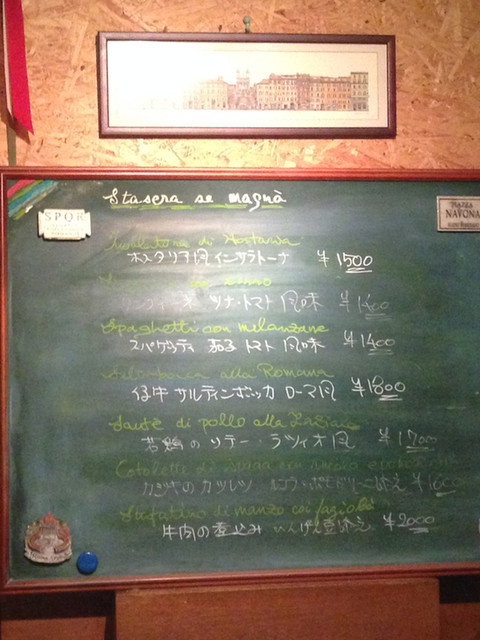 Stasera se magnà
SPQR
PIAZZA
NAVONA
di Hostaria
ホスタリア風インサラトーナ ¥1500
ツナ・トマト風味 ¥1400
Spaghetti con melanzane
スパゲッティ 茄子トマト風味 ¥1400
alla Romana
仔牛サルティンボッカ ローマ風 ¥1800
Sautè di pollo alla
若鶏のソテー・ラツィオ風 ¥1700
カジキのカツレツ
Stufatino di manzo coi fagioli
牛肉の煮込み いんげん豆添え ¥2000